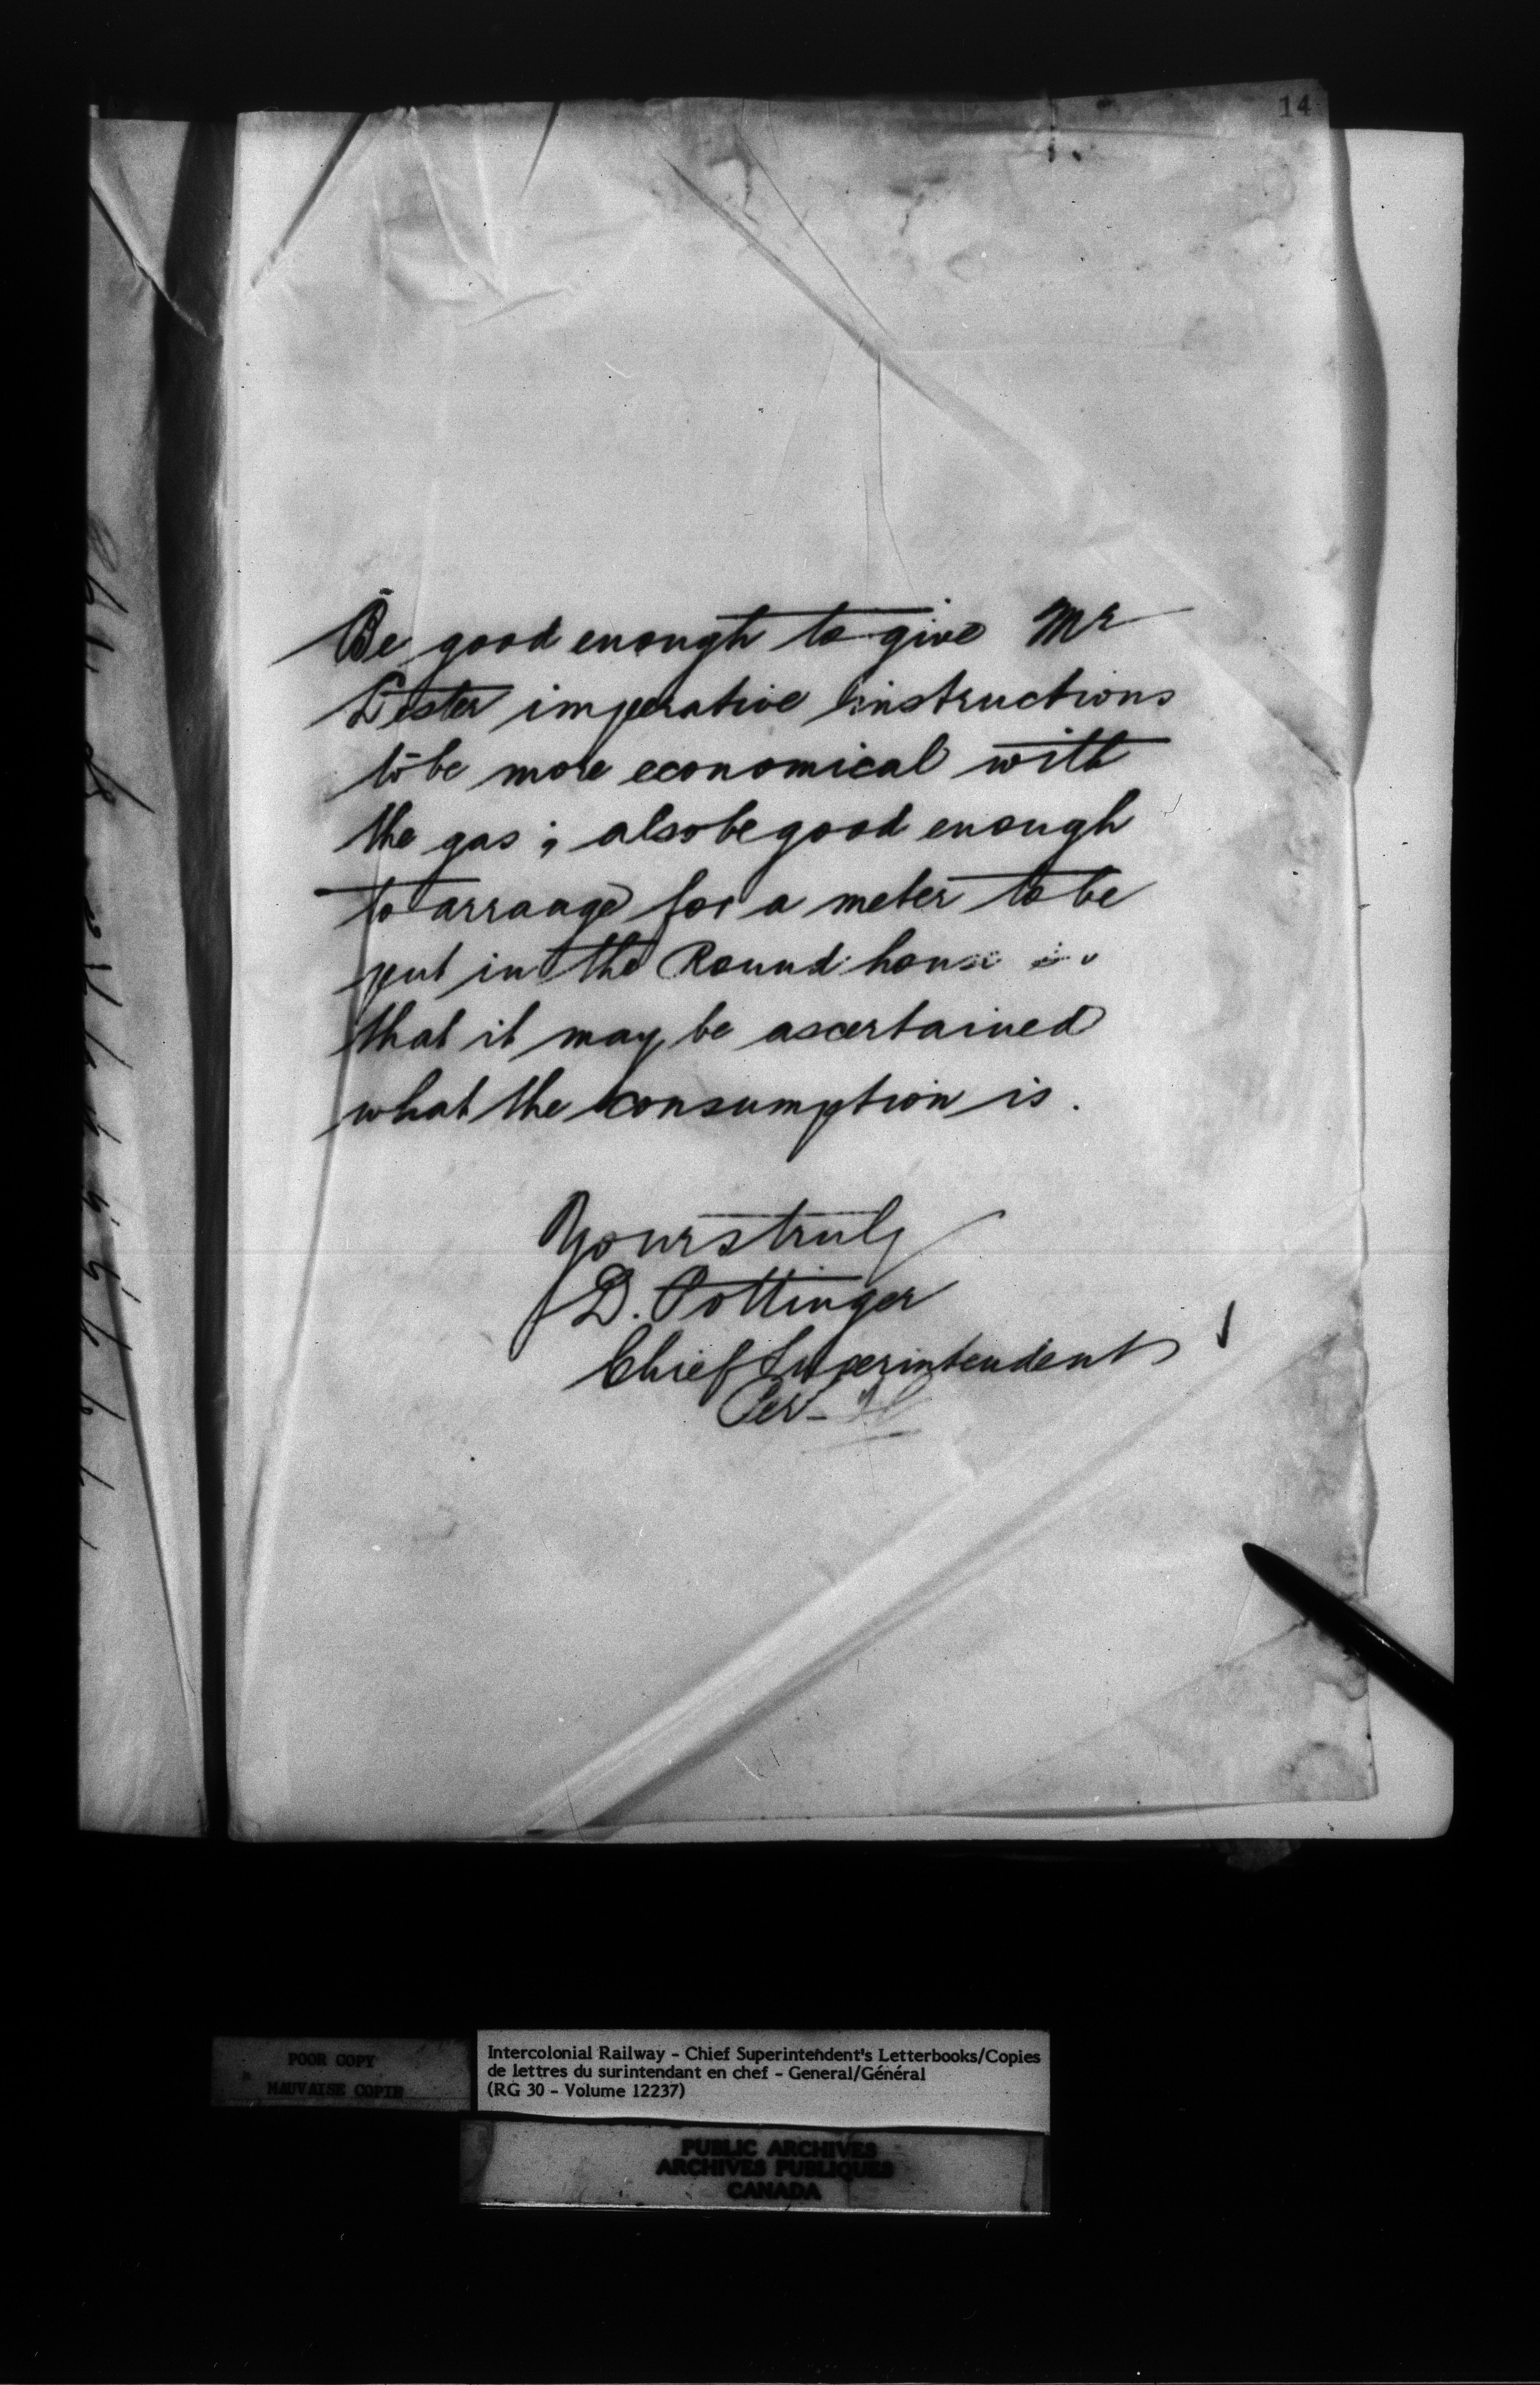 14
Be good enough to give Mr
Lester imperative instructions
to be more economical with
the gas; also be good enough
to arrange for a meter to be
put in the Round house so
that it may be ascertained
what the consumption is.
Yours truly
D. Pottinger
Chief Superintendent
Per
POOR COPY
MAUVAISE COPIE
Intercolonial Railway - Chief Superintendent's Letterbooks/Copies
de lettres du surintendant en chef - General/Général
(RG 30 - Volume 12237)
PUBLIC ARCHIVES
ARCHIVES PUBLIQUES
CANADA